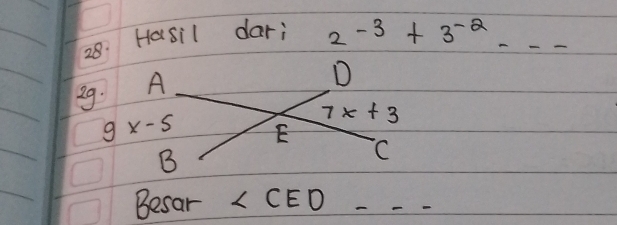 28. Hasil dari 2⁻³ + 3⁻² - - -
29. A D
9x-5 7x+3
E
B C
Besar < CED - - -